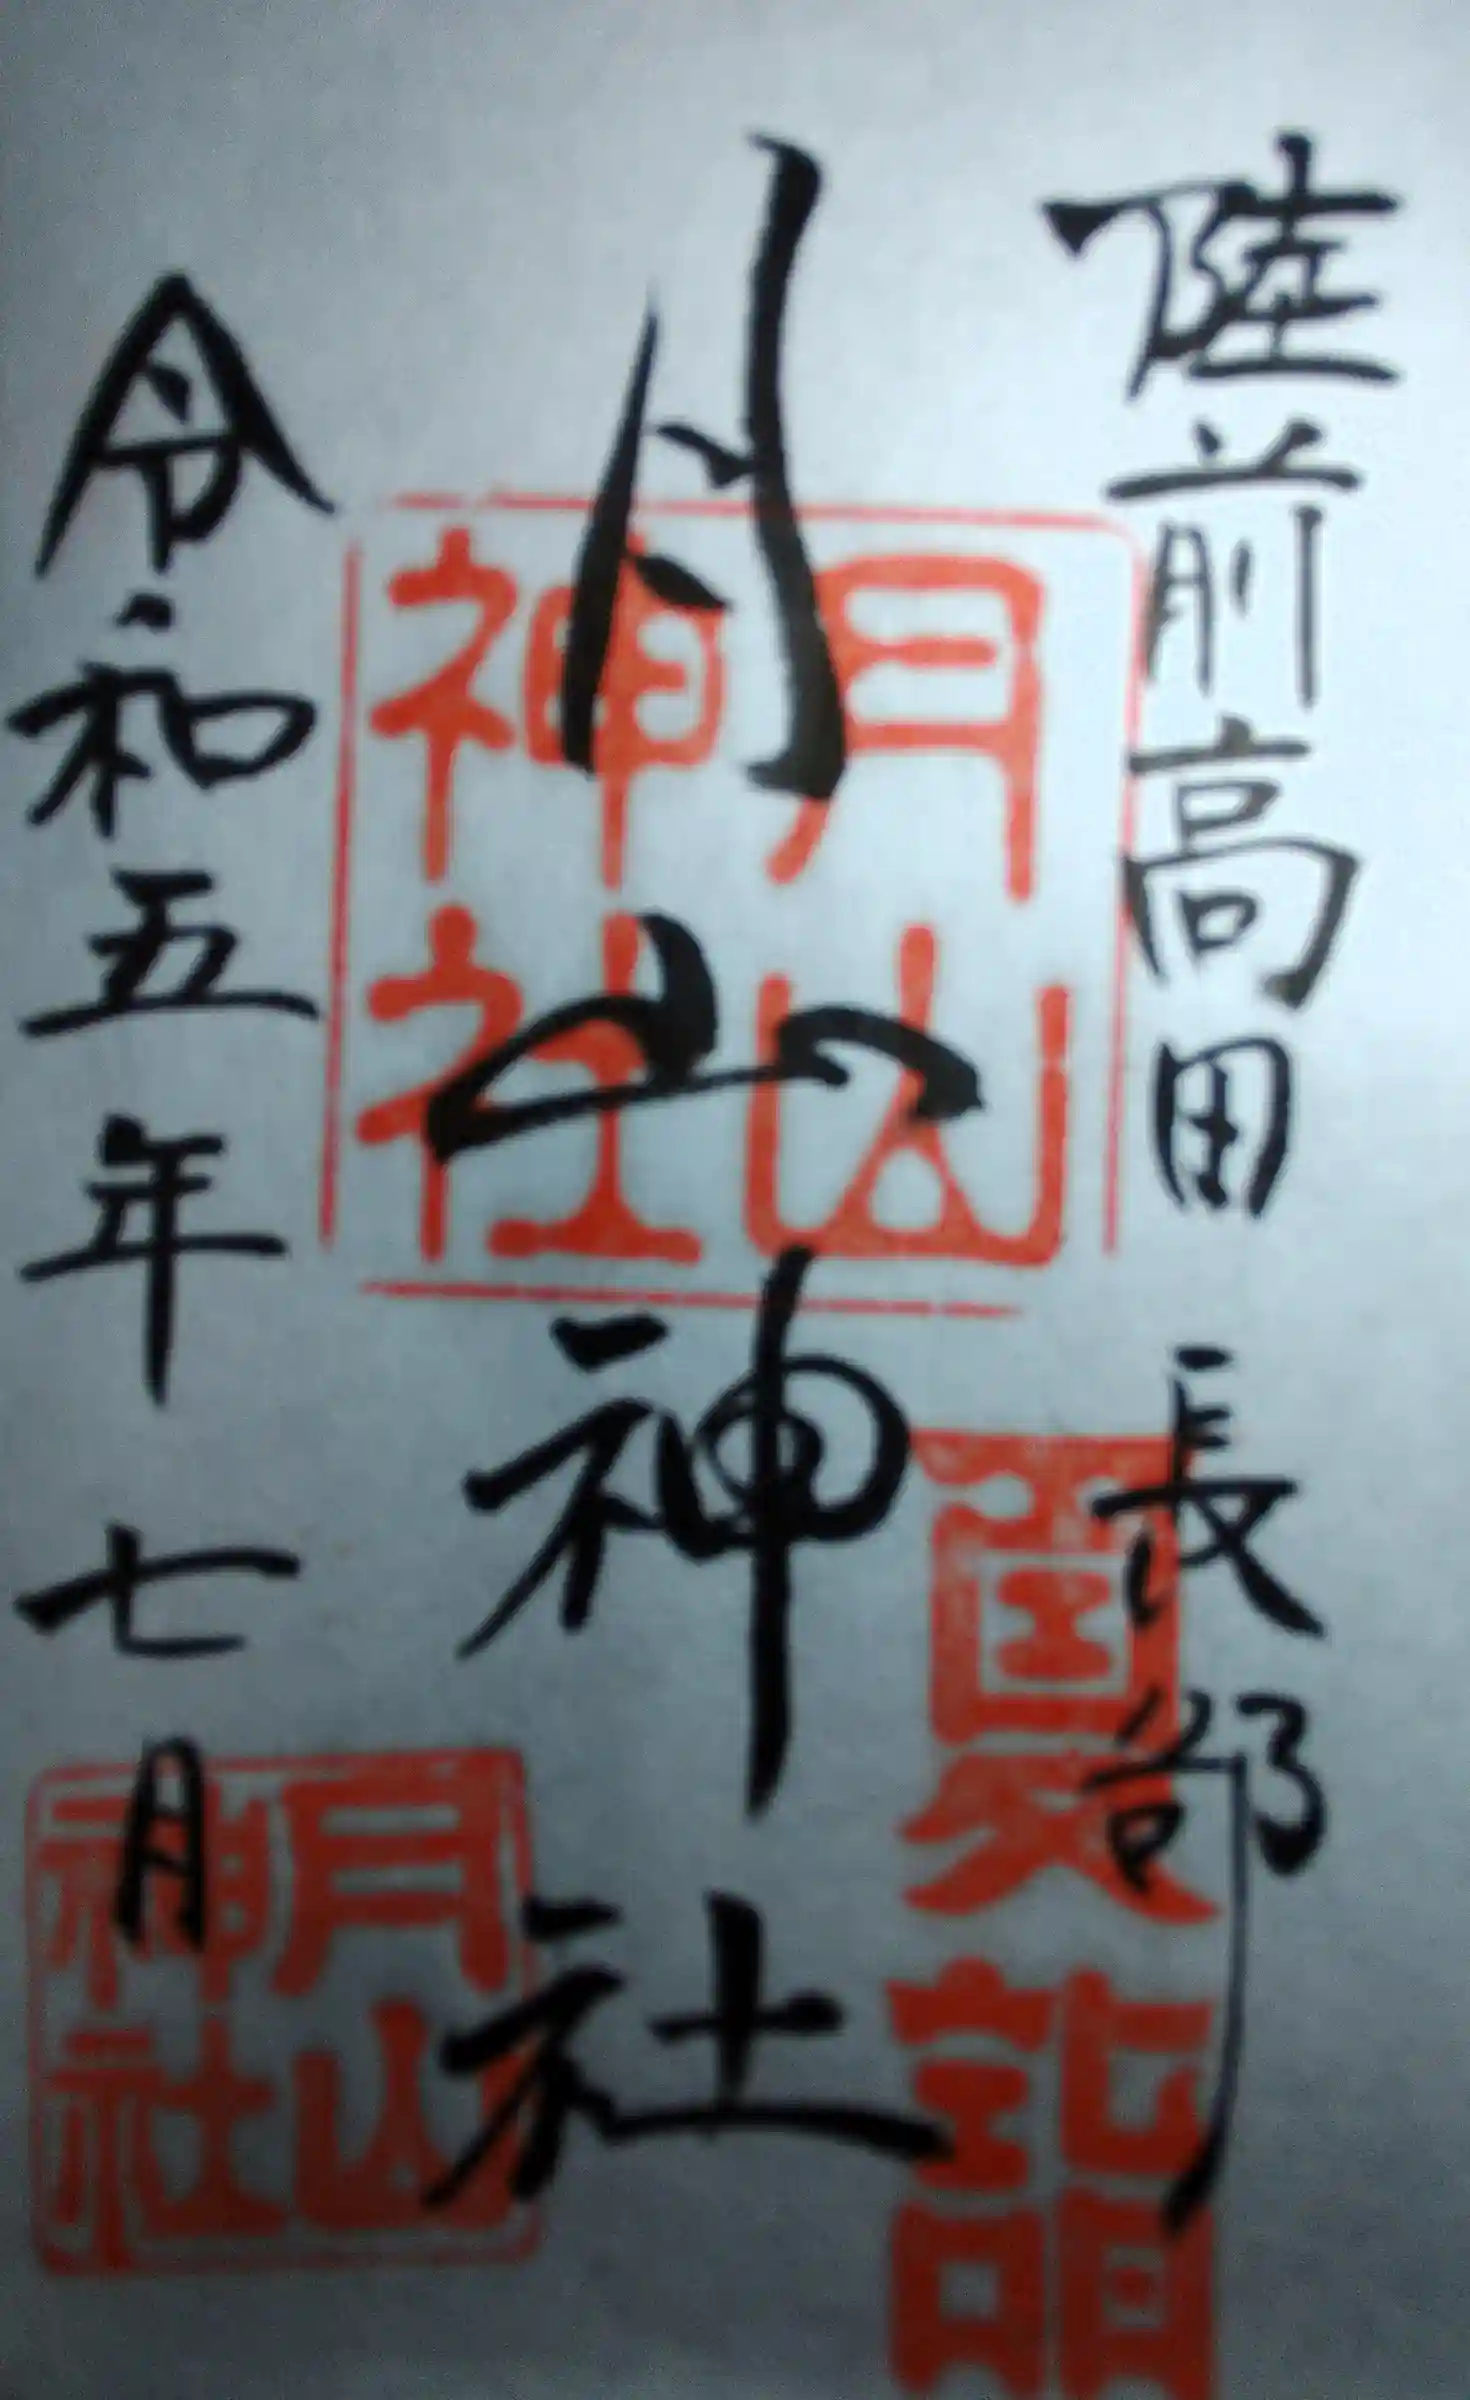 陸前高田 長部
夏詣
月山神社
月山
神社
令和五年七月
月山
神社